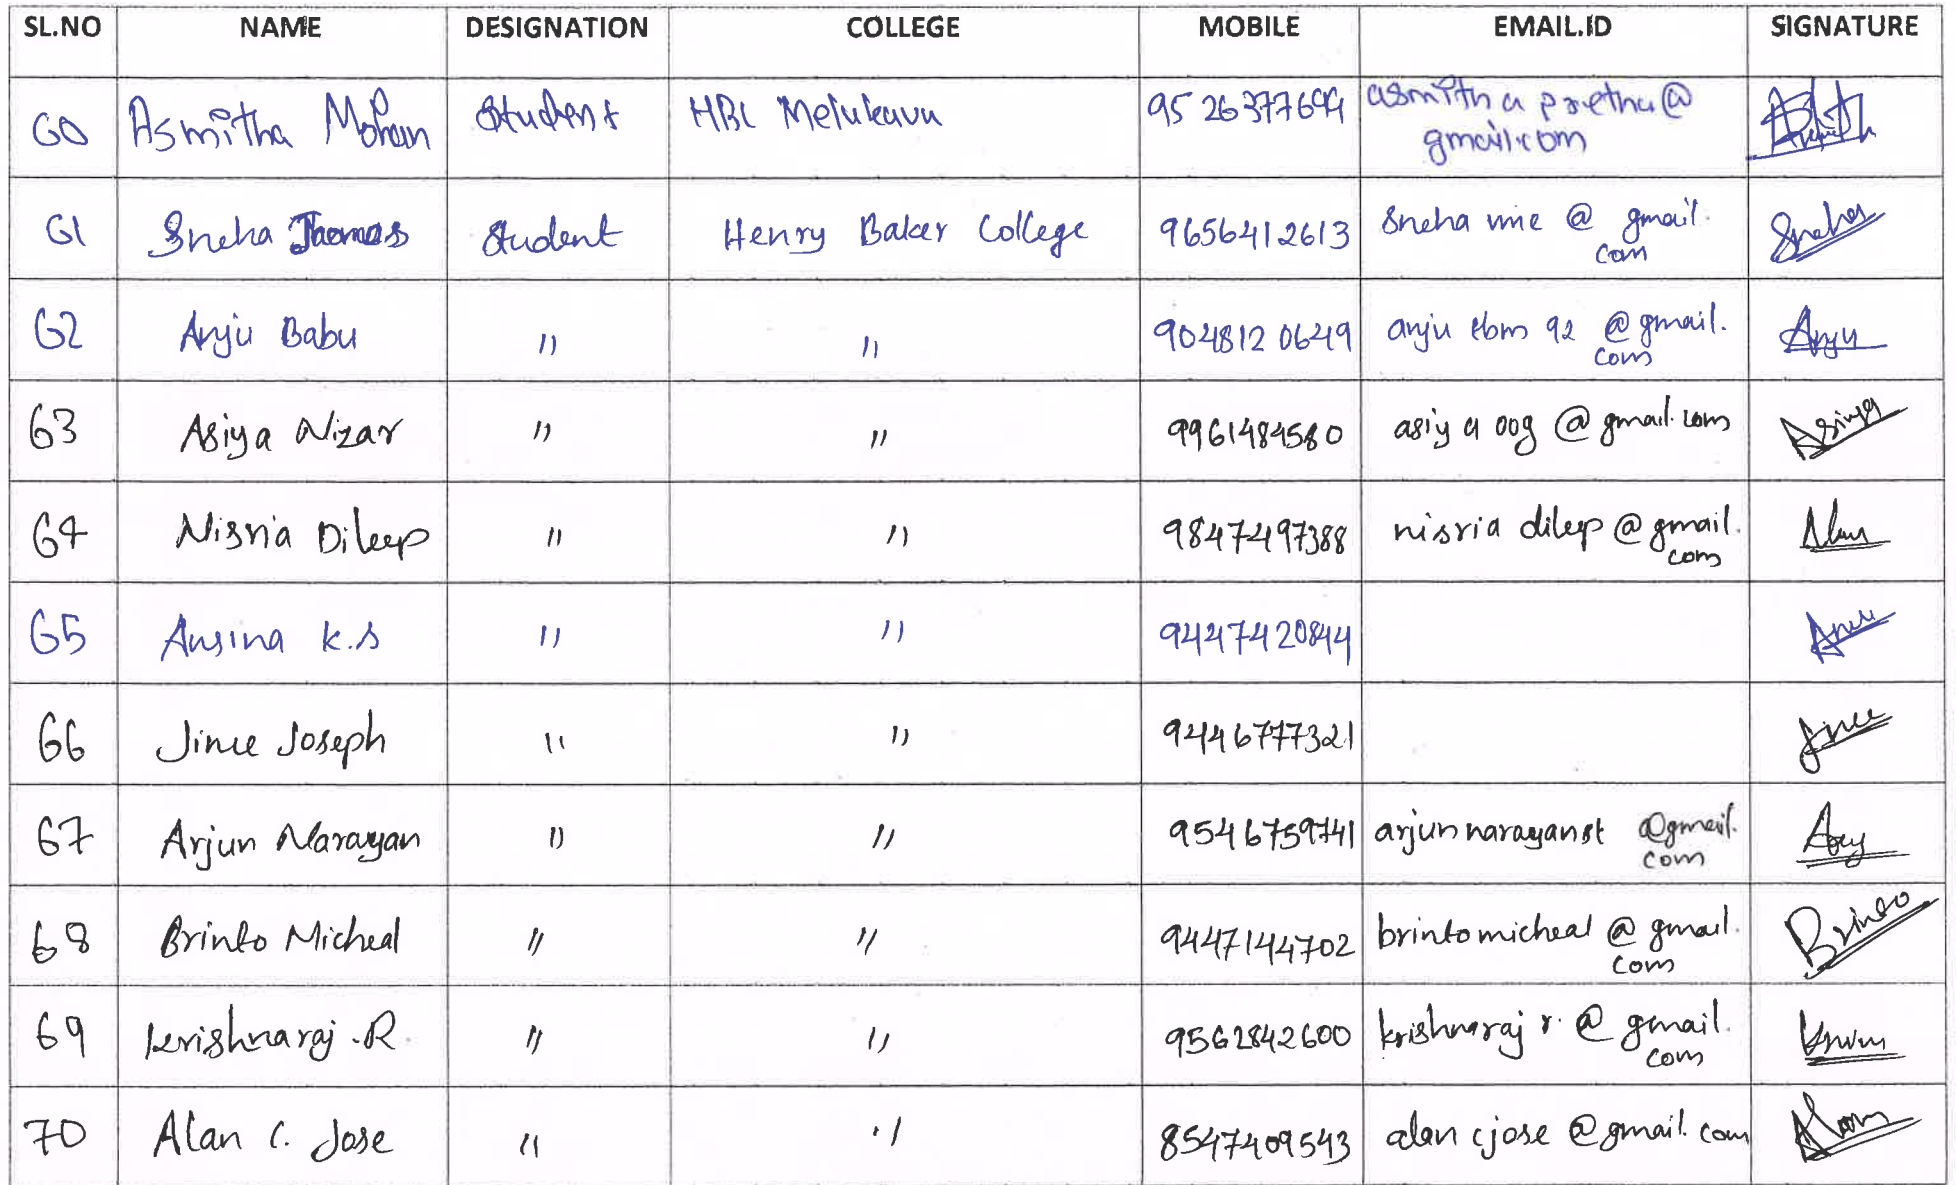 SL.NO NAME DESIGNATION COLLEGE MOBILE EMAIL.ID SIGNATURE
60 Asmitha Mohan Student HBC Melukavu 9526377699 asmitha pretha@
gmail.com
61 Sneha Thomas Student Henry Baker College 9656412613 Sneha vme @ gmail. Sneha
com
62 Anju Babu " " 904812 0649 anju tbm 92 @gmail. Anju
com
63 Asiya Nizar " " 9961484580 asiya 009 @gmail.com Asiya
64 Nisria Dileep " " 9847497388 nisria dileep @gmail.
com
65 Ansina K.S " " 9447420844
66 Jince Joseph " " 9446777321 Jince
67 Arjun Narayan " " 9546759741 arjunnarayanst @gmail.
com
68 Brinto Micheal " " 9447144702 brintomicheal @ gmail. Brinto
com
69 Krishnaraj .R " " 9562842600 krishnaraj r. @ gmail.
com
70 Alan C. Jose " " 8547409543 alan cjose @gmail.com Alan